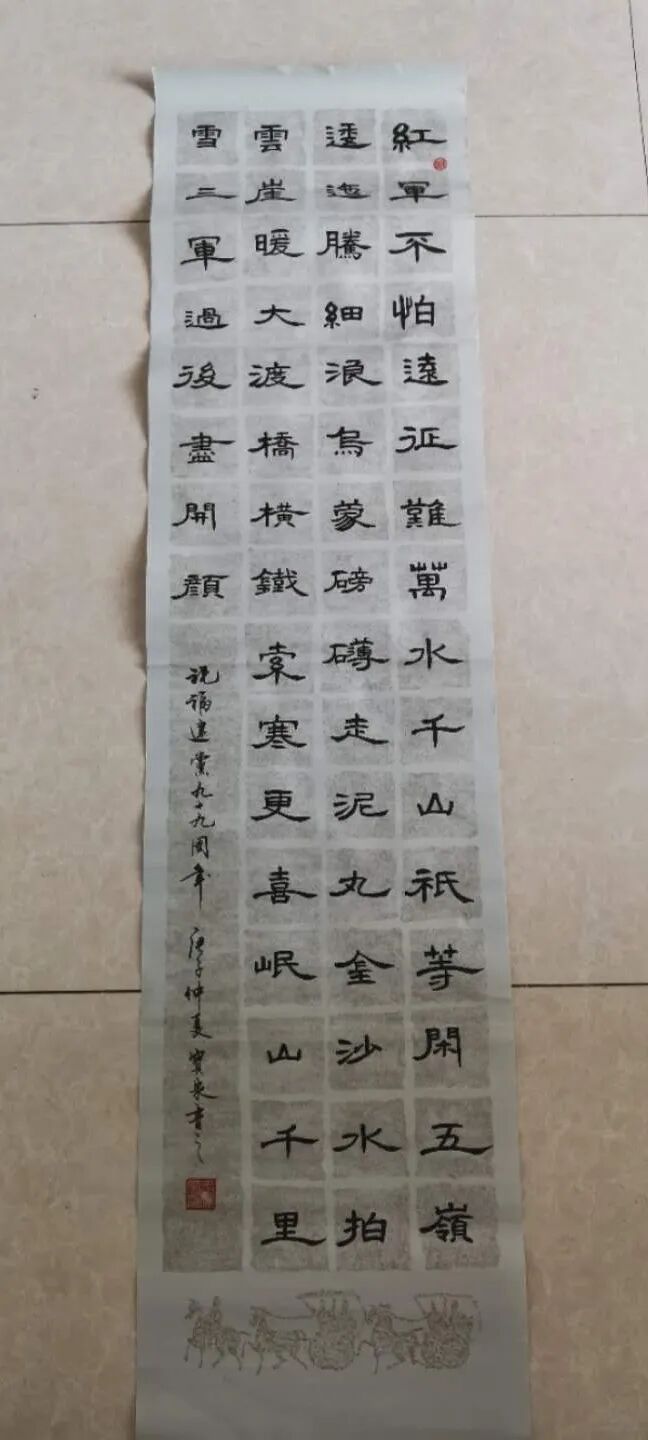 紅軍不怕遠征難萬水千山祇等閑五嶺
逶迤騰細浪烏蒙磅礴走泥丸金沙水拍
雲崖暖大渡橋橫鐵索寒更喜岷山千里
雪三軍過後盡開顏
祝福建黨九十九周年 庚子仲夏寶泉書之